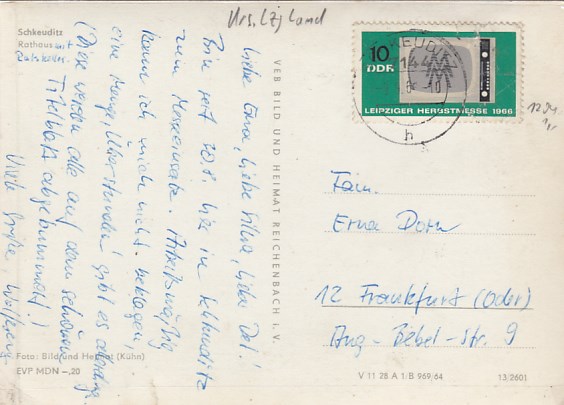 Urs. Lzj Land
Schkeuditz
Rathaus mit
Ratskeller.
Liebe Erna, liebe Silvia, lieber Det!
Bin seit 28.8. hier in Schkeuditz
zum Messeeinsatz. Arbeitsmäßig
kann ich mich nicht beklagen,
eine Menge Überstunden gibt es allerdings.
(Diese werden alle auf dem schönen
Titelblatt abgebummelt!)
Viele Grüße, Wolfgang
Foto: Bild und Heimat (Kühn)
EVP MDN –,20
VEB BILD UND HEIMAT REICHENBACH i. V.
KEUDITZ
144
h
10
DDR
LEIPZIGER HERBSTMESSE 1966
1234
1,-
Fam.
Erna Dorn
12 Frankfurt (Oder)
Aug.-Bebel-Str. 9
V 11 28 A 1/B 969/64
13/2601